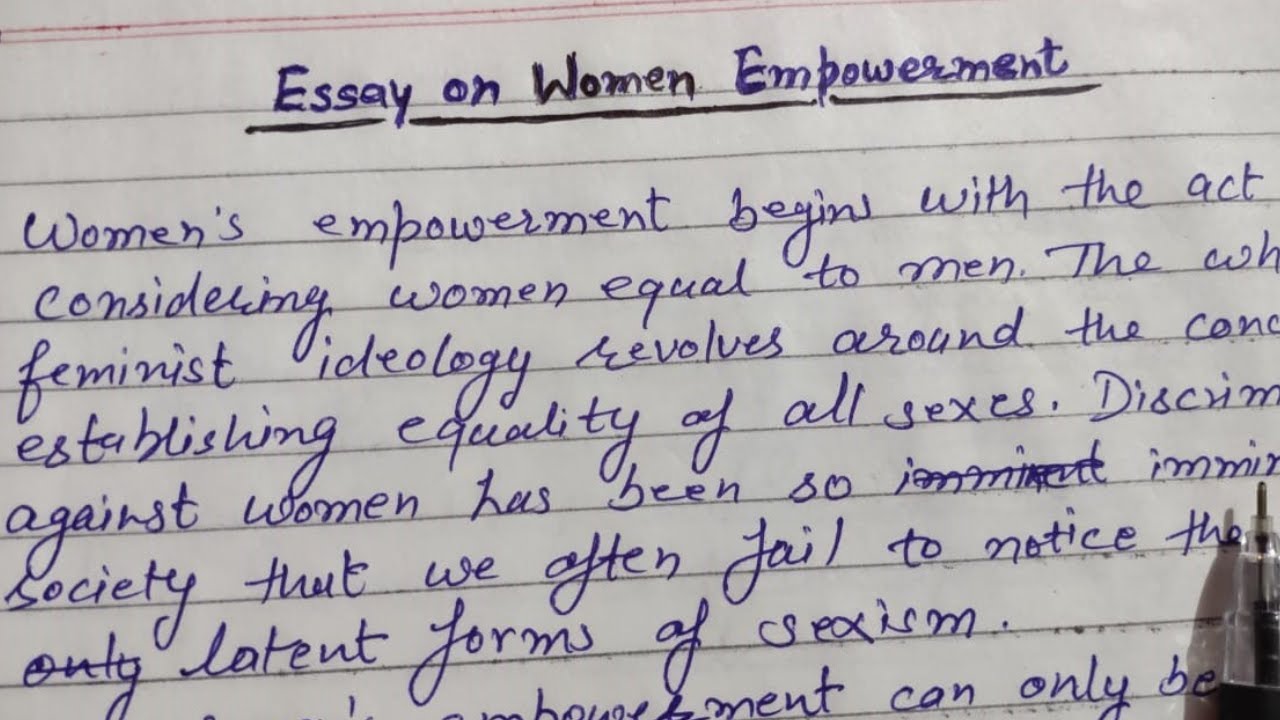 Essay on Women Empowerment
Women's empowerment begins with the act
considering women equal to men. The wh
feminist ideology revolves around the conc
establishing equality of all sexes. Discrim
against women has been so imminent immin
society that we often fail to notice the
only latent forms of sexism.
empowerment can only be